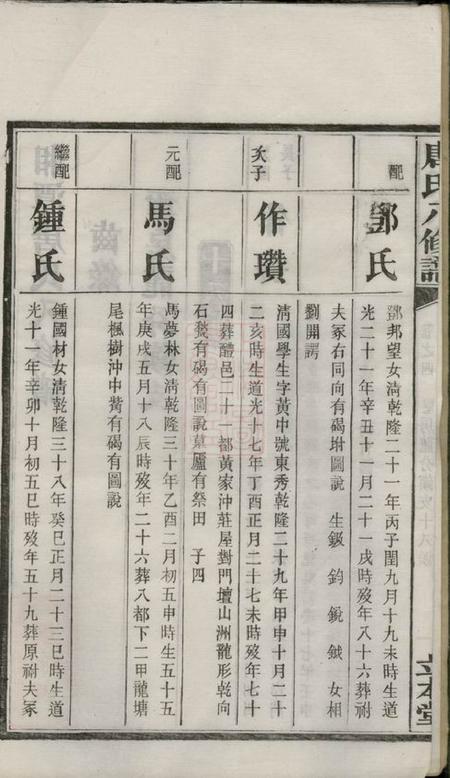 唐氏六修譜
立本堂
配
鄧氏
鄧邦望女清乾隆二十一年丙子閏九月十九未時生道
光二十一年辛丑十一月二十一戌時歿年八十六葬祔
夫冢右同向有碣坿圖說 生鈒 鈞 銳 鉞 女相
劉開諤
次子
作瓚
清國學生字黃中號東秀乾隆二十九年甲申十月二十
二亥時生道光十七年丁酉正月二十七未時歿年七十
四葬醴邑二十一都黃家沖莊屋對門壇山洲龍形乾向
石甃有碣有圖說墓廬有祭田 子四
元配
馬氏
馬夢林女清乾隆三十年乙酉二月初五申時生五十五
年庚戌五月十八辰時歿年二十六葬八都下二甲龍塘
尾楓樹沖中嘴有碣有圖說
繼配
鍾氏
鍾國材女清乾隆三十八年癸巳正月二十三巳時生道
光十一年辛卯十月初五巳時歿年五十九葬原祔夫冢